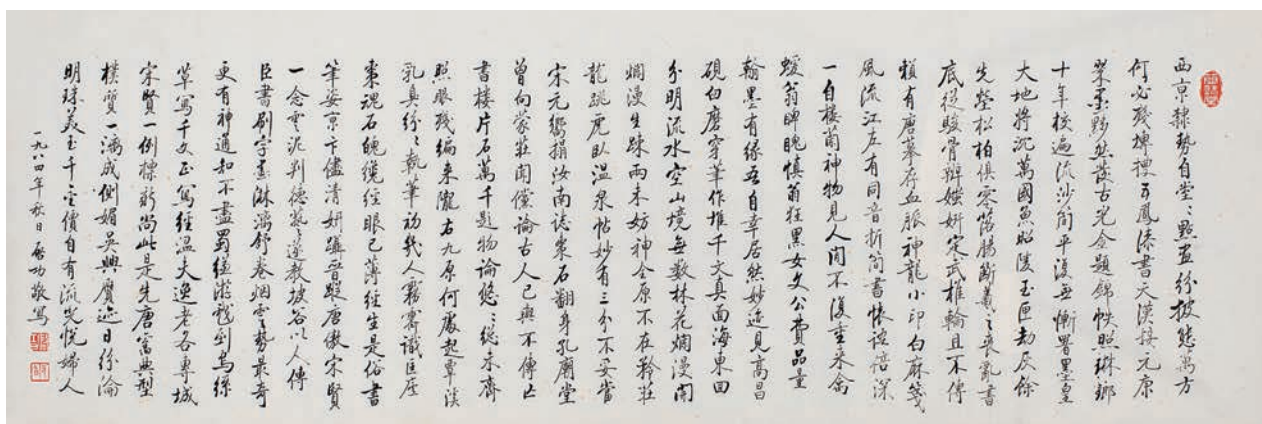 西京隸勢自堂〻點畫紛披態萬方
何必殘碑搜五鳳漆書天漢接元康
翠墨黟然發古光金題錦帙照琳瑯
十年校遍流沙簡平復無慚署墨皇
大地將沉萬國魚昭陵玉匣劫灰餘
先塋松柏俱零落腸斷羲之喪亂書
底從駿骨辨媸妍定武椎輪且不傳
賴有唐摹存血脈神龍小印白麻箋
風流江左有同音折簡書懷語倍深
一自樓蘭神物見人間不復重來禽
蝯翁睥睨慎翁狂黑女文公費品量
翰墨有緣吾自幸居然妙迹見高昌
硯臼磨穿筆作堆千文真面海東回
分明流水空山境無數林花爛漫開
爛漫生疎兩未妨神全原不在矜莊
龍跳虎臥溫泉帖妙有三分不妥當
宋元嚮搨汝南誌棗石翻身孔廟堂
曾向蒙莊聞儻論古人已與不傳亡
書樓片石萬千題物論悠〻總未齊
照眼殘編來隴右九原何處起覃溪
乳臭紛〻執筆初幾人霧霽識匡廬
棗魂石魄纔經眼已薄經生是俗書
筆姿京卞儘清妍躡晉蹤唐傲宋賢
一念雲泥判德藝遂教坡谷以人傳
臣書刷字墨淋漓舒卷烟雲勢最奇
更有神通知不盡蜀縑游戲到烏絲
草寫千文正寫經溫夫逸老各專城
宋賢一例標新尚此是先唐舊典型
樸質一漓成側媚吳興贋迹日紛淪
明珠美玉千金價自有流光悅婦人
一九八四年秋日啟功敬寫